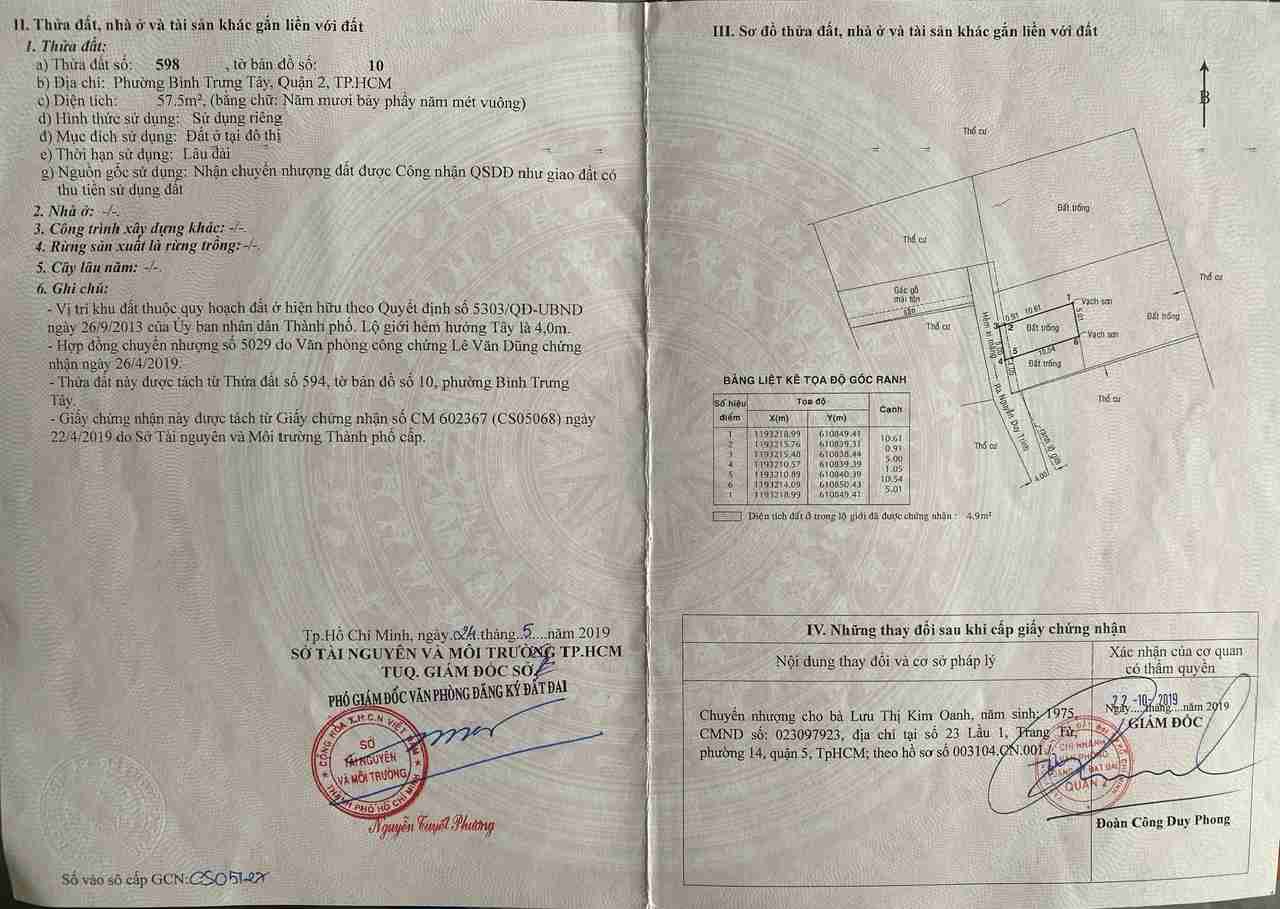 II. Thửa đất, nhà ở và tài sản khác gắn liền với đất
1. Thửa đất:
a) Thửa đất số: 598 , tờ bản đồ số: 10
b) Địa chỉ: Phường Bình Trưng Tây, Quận 2, TP.HCM
c) Diện tích: 57.5m², (bằng chữ: Năm mươi bảy phẩy năm mét vuông)
d) Hình thức sử dụng: Sử dụng riêng
đ) Mục đích sử dụng: Đất ở tại đô thị
e) Thời hạn sử dụng: Lâu dài
g) Nguồn gốc sử dụng: Nhận chuyển nhượng đất được Công nhận QSDĐ như giao đất có
thu tiền sử dụng đất
2. Nhà ở: -/-.
3. Công trình xây dựng khác: -/-.
4. Rừng sản xuất là rừng trồng: -/-.
5. Cây lâu năm: -/-.
6. Ghi chú:
- Vị trí khu đất thuộc quy hoạch đất ở hiện hữu theo Quyết định số 5303/QĐ-UBND
ngày 26/9/2013 của Ủy ban nhân dân Thành phố. Lộ giới hẻm hướng Tây là 4,0m.
- Hợp đồng chuyển nhượng số 5029 do Văn phòng công chứng Lê Văn Dũng chứng
nhận ngày 26/4/2019.
- Thửa đất này được tách từ Thửa đất số 594, tờ bản đồ số 10, phường Bình Trưng
Tây.
- Giấy chứng nhận này được tách từ Giấy chứng nhận số CM 602367 (CS05068) ngày
22/4/2019 do Sở Tài nguyên và Môi trường Thành phố cấp.
Tp.Hồ Chí Minh, ngày.024.tháng..5....năm 2019
SỞ TÀI NGUYÊN VÀ MÔI TRƯỜNG TP.HCM
TUQ. GIÁM ĐỐC SỞ
PHÓ GIÁM ĐỐC VĂN PHÒNG ĐĂNG KÝ ĐẤT ĐAI
CỘNG HÒA X.H.C.N VIỆT NAM
SỞ
TÀI NGUYÊN
VÀ MÔI TRƯỜNG
THÀNH PHỐ HỒ CHÍ MINH
Nguyễn Tuyết Phương
Số vào sổ cấp GCN: CS05127
III. Sơ đồ thửa đất, nhà ở và tài sản khác gắn liền với đất
B
Thổ cư
Đất trống
Thổ cư
Thổ cư
Gác gỗ
mái tôn
sân
Thổ cư
Hẻm xi măng
1
Vạch sơn
10.61
0.91
5.01
3
2
Đất trống
6
Vạch sơn
Đất trống
5.00
5
10.54
4
1.05
Đất trống
Thổ cư
Ra Nguyễn Duy Trinh
ranh lộ giới
Thổ cư
4.00
BẢNG LIỆT KÊ TỌA ĐỘ GÓC RANH
Số hiệu điểm Tọa độ Cạnh
X(m) Y(m)
1 1193218.99 610849.41
10.61
2 1193215.76 610839.31
0.91
3 1193215.48 610838.44
5.00
4 1193210.57 610839.39
1.05
5 1193210.89 610840.39
10.54
6 1193214.09 610850.43
5.01
1 1193218.99 610849.41
Diện tích đất ở trong lộ giới đã được chứng nhận : 4.9m²
IV. Những thay đổi sau khi cấp giấy chứng nhận
Nội dung thay đổi và cơ sở pháp lý
Xác nhận của cơ quan
có thẩm quyền
Chuyển nhượng cho bà Lưu Thị Kim Oanh, năm sinh: 1975,
CMND số: 023097923, địa chỉ tại số 23 Lầu 1, Trang Tử,
phường 14, quận 5, TpHCM; theo hồ sơ số 003104.CN.001./.
22 -10- 2019
Ngày....tháng....năm 2019
GIÁM ĐỐC
CHI NHÁNH
QUẬN 2
Đoàn Công Duy Phong